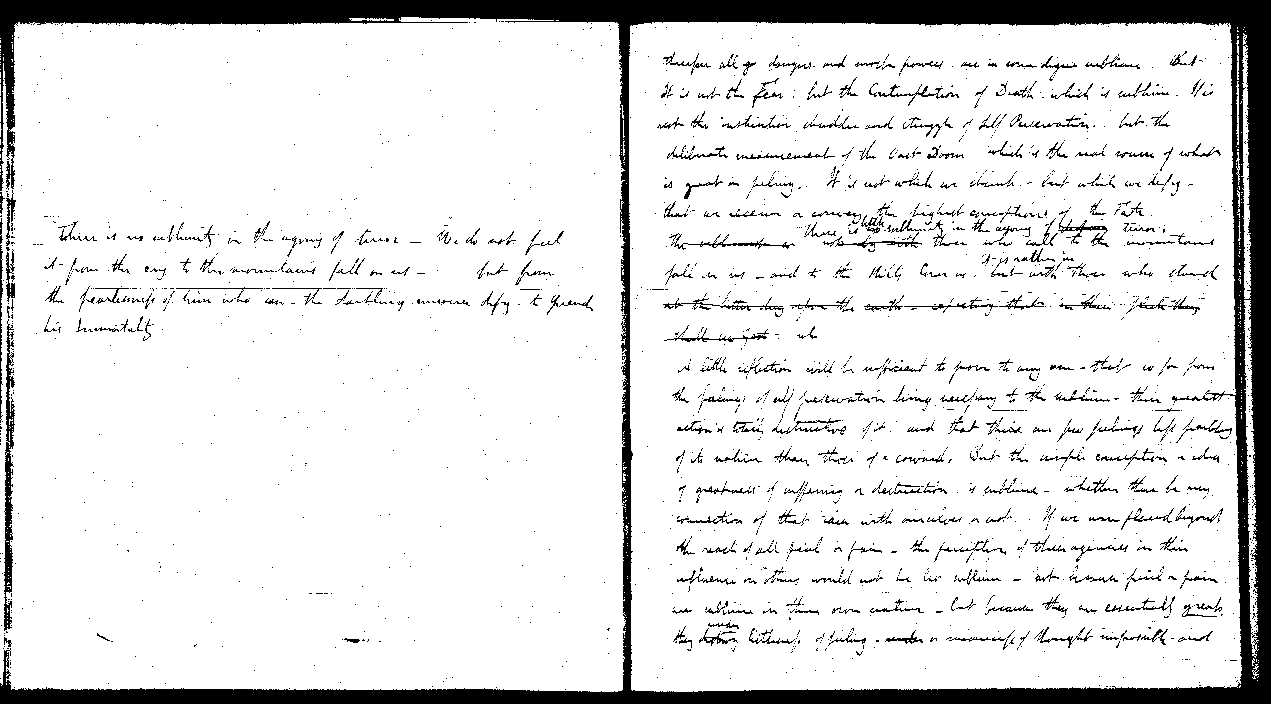 There is no sublimity in the agony of terror – We do not feel
it from the cry to the mountains fall on us – but from
the fearlessness of him who can – the darkling universe defy – to quench
his Immortality.
therefore all dangers and powers are in some degree sublime. But
It is not the Fear: but the Contemplation of Death which is sublime. It is
not the instinctive shudder and struggle of Self Preservation. but the
deliberate measurement of the Doom which is the real source of what
is great in feeling. It is not while we shrink – but while we defy –
that we receive or convey the highest conceptions of the Fate.
there is little sublimity in the agony of terror:
the sublimest or not by with those who call to the mountains
it is rather in
fall on us – and to the Hills, Cover us. but with those who stand
at the latter day upon the earth – expecting that in their flesh they
shall see god – wh
A little reflection will be sufficient to prove to any one – that so far from
the feelings of self preservation being necessary to the sublime – their greatest
action is totally destructive of it: and that there are few feelings less partaking
of its nature than those of a coward. But the simple conception or idea
of greatness of suffering or destruction is sublime – whether there be any
connection of that idea with ourselves or not. If we were placed beyond
the reach of all peril or pain – the perception of these agencies in their
influence on others would not be less sublime – not because peril or pain
are sublime in their own nature – but because they are essentially great
render
they destroy littleness of feeling – under or meanness of thought impossible – and